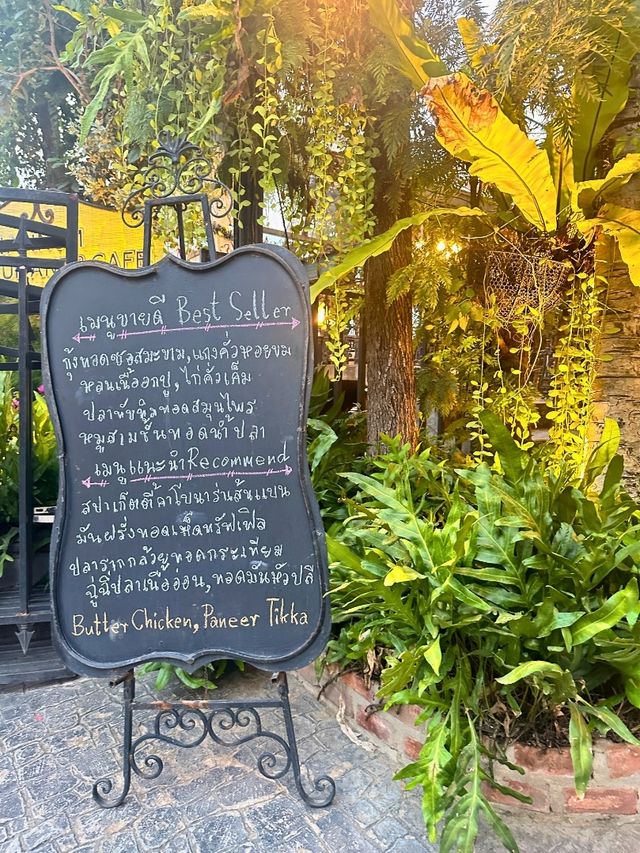 CAFE
เมนูขายดี Best Seller
กุ้งทอดซอสมะขาม,แกงคั่วหอยขม
หลนเนื้ออกปู,ไก่คั่วเค็ม
ปลาทับทิมทอดสมุนไพร
หมูสามชั้นทอดน้ำปลา
เมนูแนะนำRecommend
สปาเก็ตตี้คาโบนาร่าแบบ
มันฝรั่งทอดเห็ดทรัฟเฟิล
ปลารากกล้วยทอดกระเทียม
ฉู่ฉี่ปลาเนื้ออ่อน,ทอดมันหัวปลี
Butter Chicken, Paneer Tikka